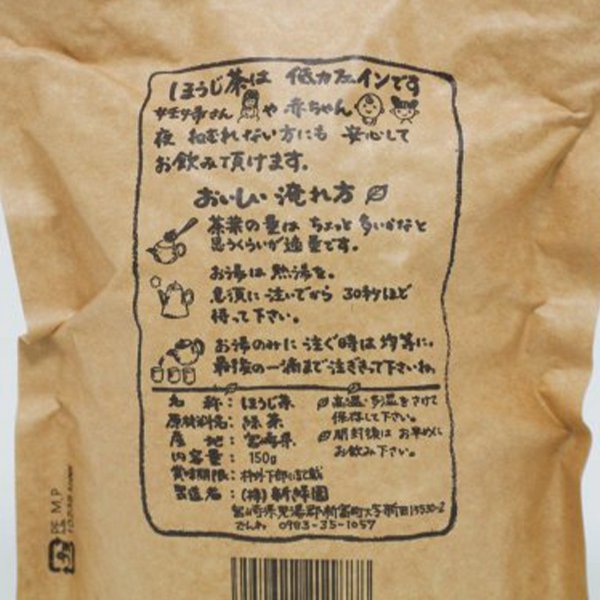 ほうじ茶は 低カフェインです
や 赤ちゃん
夜 ねむれない方にも 安心して
お飲みて頂けます。
おいしい 淹れ方
茶葉の量は ちょっと 多いかなと
思うくらいが適量です。
お湯は 熱湯を。
急須に注いでから 30秒ほど
待って下さい。
お湯のみに 注ぐ時は 均等に。
最後の一滴まで注ぎきって下さいね。
名 称:ほうじ茶
原材料名:緑 茶
産 地:宮崎県
内容量:150g
賞味期限:枠外下部に記載
製造者:(株)新緑園
宮崎県児湯郡新富町大字新田
でんわ 0983-35-1057
高温・多湿をさけて
保存して下さい。
開封後は お早めに
お飲み下さい。
PE, M, P